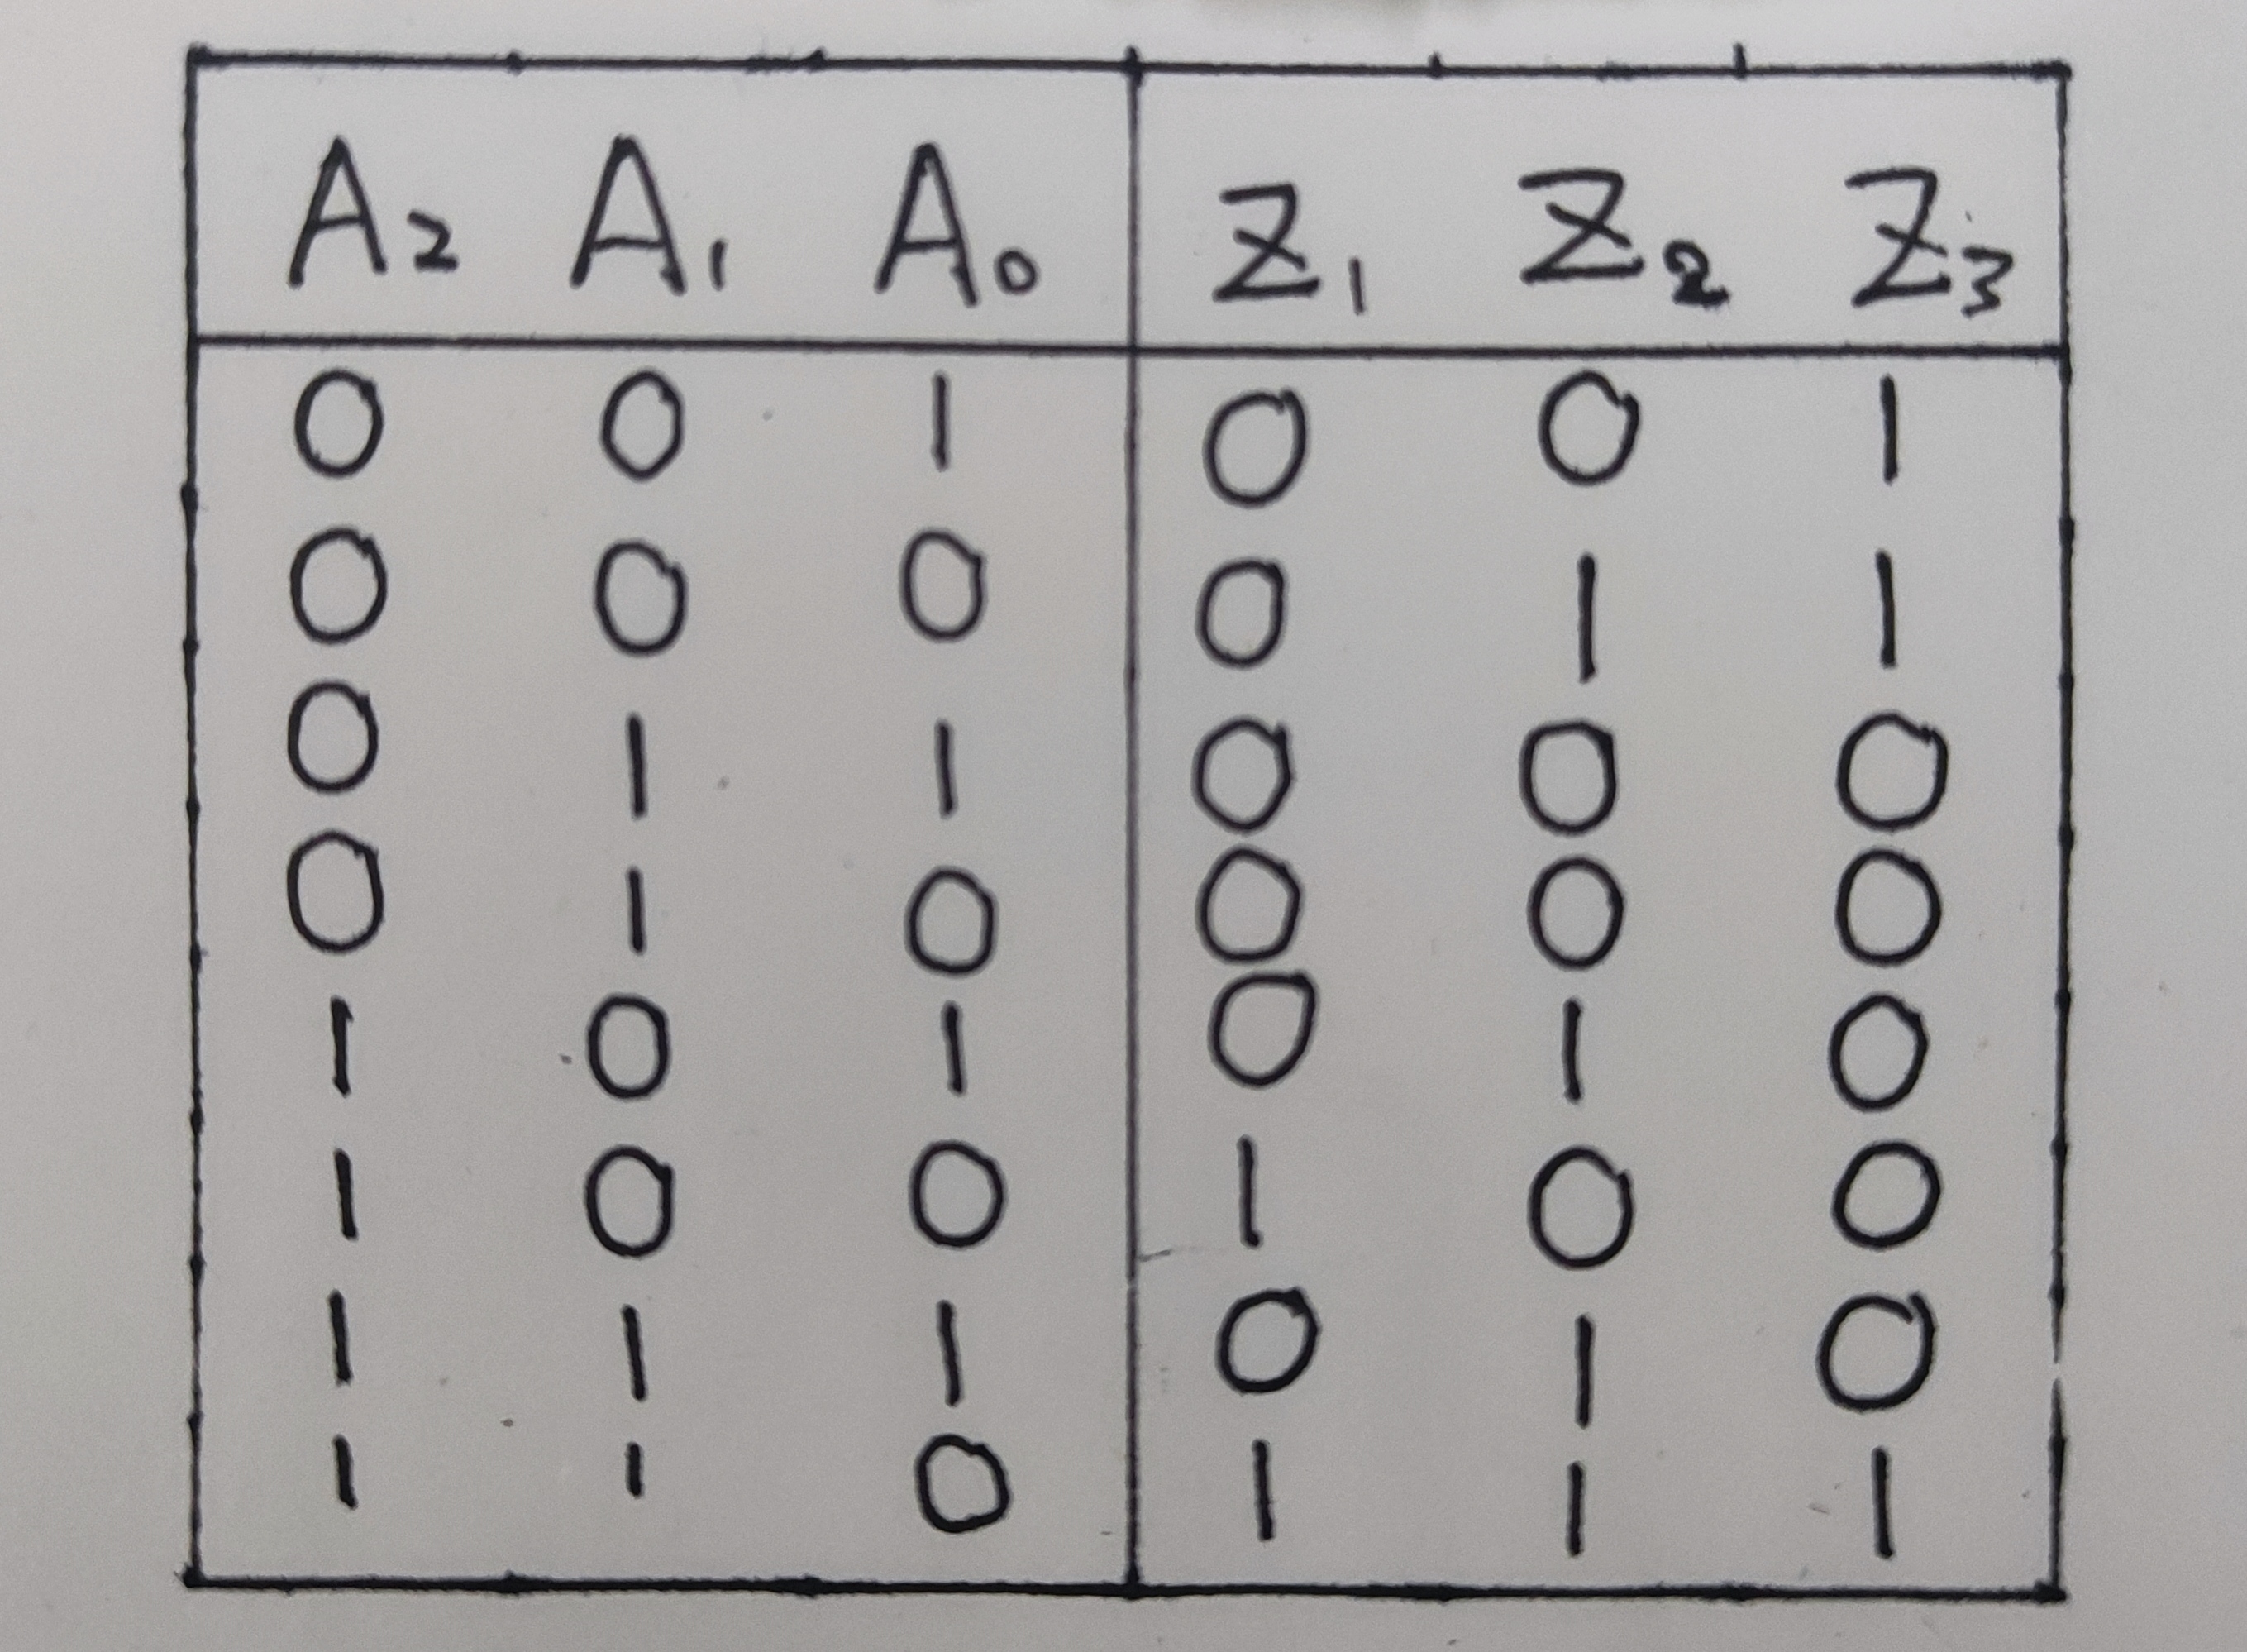 A₂ A₁ A₀ Z₁ Z₂ Z₃
0 0 1 0 0 1
0 0 0 0 1 1
0 1 1 0 0 0
0 1 0 0 0 0
1 0 1 0 1 0
1 0 0 1 0 0
1 1 1 0 1 0
1 1 0 1 1 1